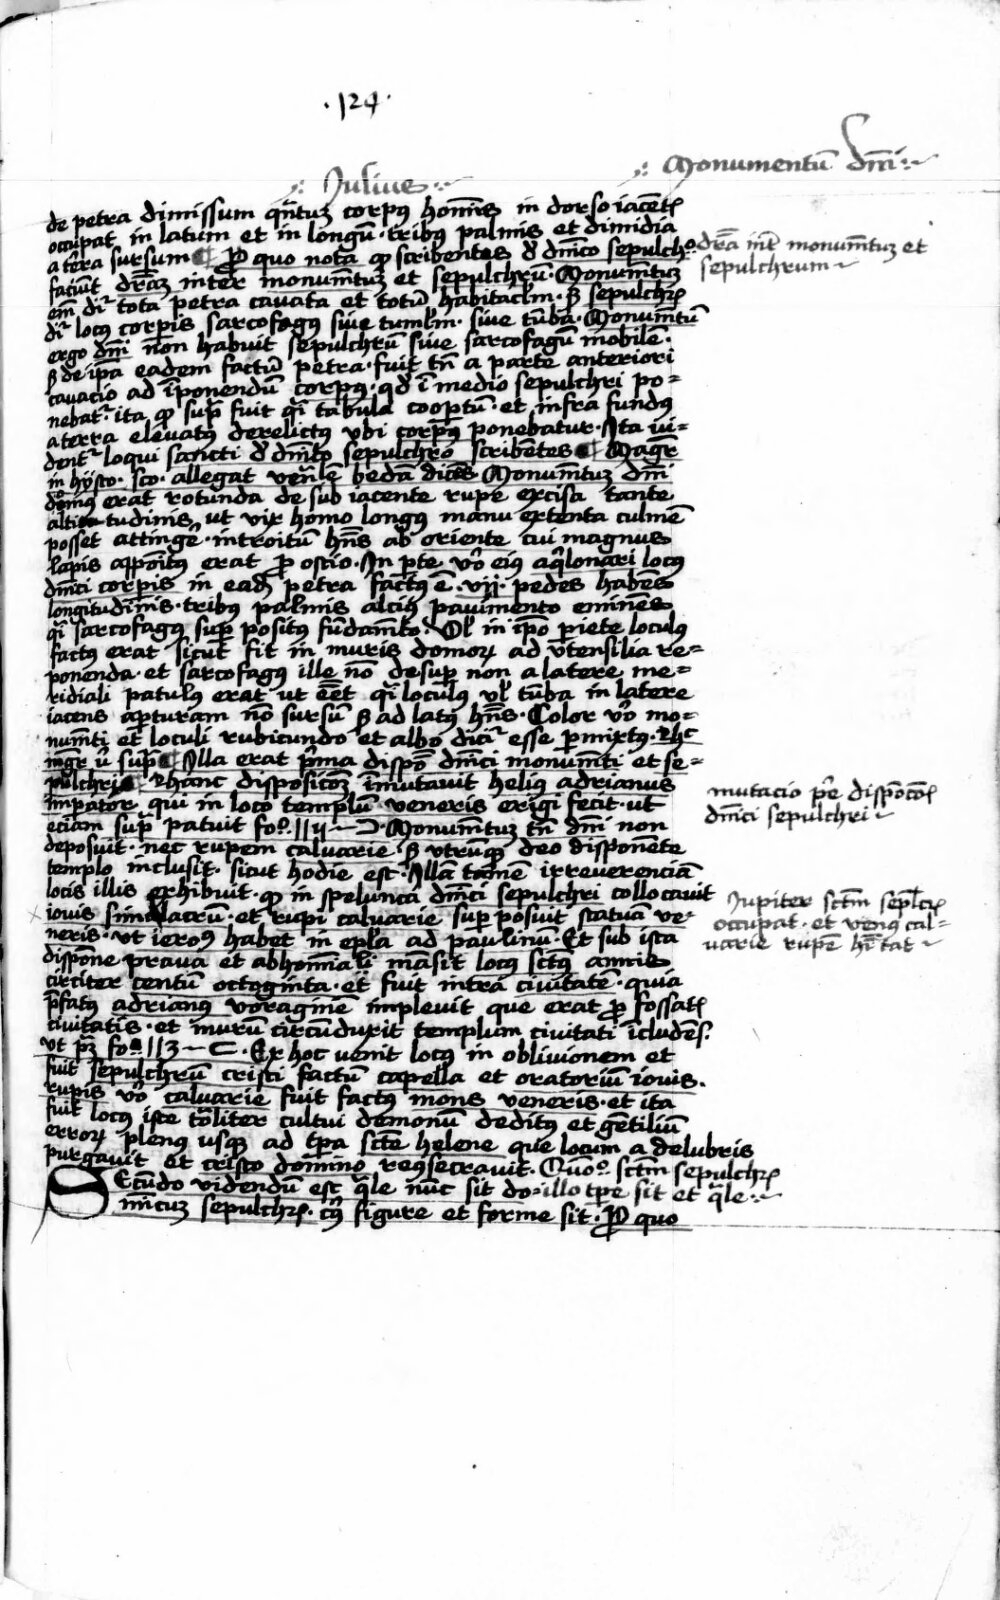 · 124 ·
Julius
Monumentū dn̄i
de petra dimissum qn̄tuʒ corpꝰ homīs in dorso iacet̄
occupat in latum et in longū · tribus palmis et dimidia
a terra sursum ¶ Pro quo nota qꝫ scribentes de dn̄ico sepulchro
faciūt dr̄am inter monumētuʒ et sepulchrū · Monumētuʒ
em̄ dr̄ tota petra cavata et totū habitacl̄m · sꝫ sepulchrū
dr̄ locꝰ corpis sarcofagus sive tumlm̄ · sive tūba · Monumētū
ergo dn̄i non habuit sepulchrū sive sarcofagū mobilē ·
sꝫ de ip̄a eadem factū petra · fuit tn̄ a parte anteriori
cavacio ad īponendū corpꝰ · qd̄ ī medio sepulchri po=
nebatr̄ · ita qꝫ supra fuit qͣi tabula coopertū · et infra fundꝰ
a terra elevatꝰ derelictꝰ ubi corpꝰ ponebatur · Ita vi=
dent̄ loqui sancti de dn̄ico sepulchro scribentes ¶ Magr̄
in hysto · sco · allegat ven̄lem bedā dicēs Monumētuʒ dn̄i
domꝰ erat rotunda de sub iacente rupe excisa tante
altitudinis ut vix homo longꝰ manu extenta culmē
posset attingē · introitū hn̄s ab oriente cui magnus
lapis appoītꝰ erat pro ostio · In pte v̄o eiꝰ aqlonari locꝰ
dn̄ici corpis in ead̄ petra factꝰ ē · vij · pedes habēs
longitudinis · tribus palmis alciꝰ pavimento eminēs
qͣi sarcofagꝰ super positꝰ fūdamēto · Vl̄ in ip̄o piete loculꝰ
factꝰ erat sicut fit in muris domoꝝ ad utensilia re=
ponenda · et sarcofagus ille nō desuper non a latere me=
ridiali patulꝰ erat ut eēt qͣi loculꝰ vl̄ tūba in latere
iacens aperturam nō sursū sꝫ ad latꝰ hn̄s · Color v̄o mo=
numēti et loculi rubicundo et albo dicir̄ esse permixtꝰ · Rhc
mgr̄ ū supra ¶ Illa erat prima dispō dn̄ici monumēti et se=
pulchri ¶ Rhanc disposicōʒ īmutavit helius adrianus
imperator qui in loco templū veneris erigi fecit · ut
eciam supra patuit foº · 112 — D · Monumētuʒ tn̄ dn̄i non
deposuit · nec rupem calvarie sꝫ utrūqꝫ deo disponēte
templo inclusit · sicut hodie est · Illā tamē irreverenciā
locis illis exhibuit · qꝫ in spelunca dn̄ici sepulchri collocavit
iovis simulacrū · et rupi calvarie super posuit statuā ve=
neris · ut ieroꝰ habet in epl̄a ad paulinū · Et sub ista
dispōne prava et abhomīali māsit locꝰ sctꝰ annis
circiter centū octoginta · et fuit intra civitatē · quia
p̄fatꝰ adrianꝰ voraginē implevit que erat pro fossat̄
civitatis · et murū circūduxit templum civitati īcludēs ·
ut pʒ foº 113 — C · Ex hoc venit locꝰ in oblivionem et
fuit sepulchrū cristi factū capella et oratoriū iovis ·
rupis v̄o calvarie fuit factꝰ mons veneris · et ita
fuit locꝰ iste totaliter cultui demonū deditꝰ et gētiliū
erroꝝ plenꝰ usqꝫ ad tp̄a scte helene que locum a delubris
purgavit et cristo domino reqsecravit · Quoº · sctm̄ sepulchrū
Secūdo videndū est qͣle nūc sit do= illo tp̄e sit et qͣle
minicuʒ sepulchrū · cꝰ figure et forme sit · Pro quo
dr̄a int̄ monumētuʒ et
sepulchrum
mutacio pͥe dispōcōi
dn̄ici sepulchri
Jupiter sctm̄ seplcrū
occupat · et venꝰ cal=
varie rupē h̄itat